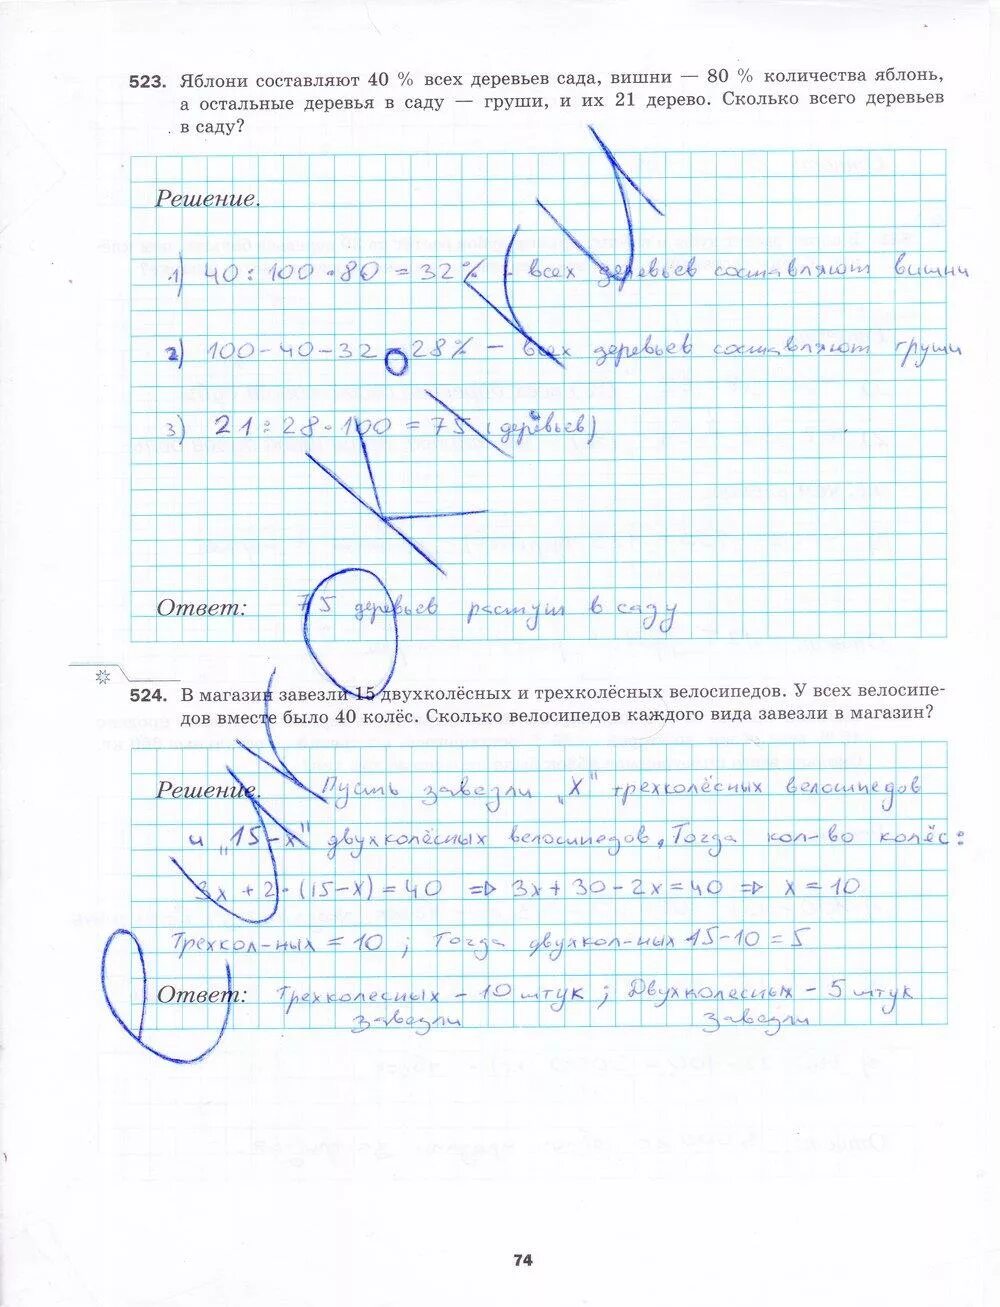 523. Яблони составляют 40 % всех деревьев сада, вишни — 80 % количества яблонь,
а остальные деревья в саду — груши, и их 21 дерево. Сколько всего деревьев
в саду?
Решение.
1) 40 : 100 · 80 = 32% - всех деревьев составляют вишни
2) 100 - 40 - 32 = 28% — всех деревьев составляют груши
3) 21 : 28 · 100 = 75 (деревьев)
Ответ: 75 деревьев растут в саду
524. В магазин завезли 15 двухколёсных и трехколёсных велосипедов. У всех велосипе-
дов вместе было 40 колёс. Сколько велосипедов каждого вида завезли в магазин?
Решение. Пусть завезли „X" трехколёсных велосипедов
и „15-x" двухколёсных велосипедов, Тогда кол-во колёс:
3x + 2 · (15-x) = 40 => 3x + 30 - 2x = 40 => x = 10
Трехкол-ных = 10 ; Тогда двухкол-ных 15-10 = 5
Ответ: Трехколесных - 10 штук ; Двухколесных - 5 штук
завезли завезли
74